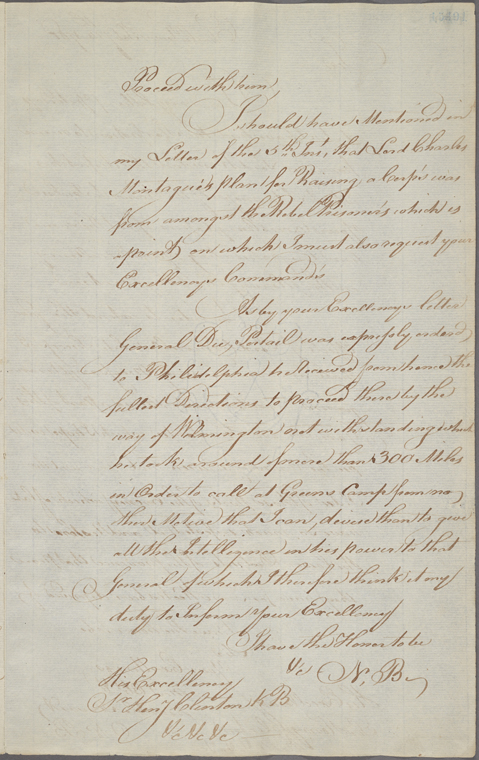 Proceed with him,
I should have Mentioned in
my Letter of the 5th Inst, that Lord Charles
Montague's Plan for Raising a Corps was
from amongst the Rebel Prisoners which is
a point, on which I must also request your
Excellencys Commands
As by your Excellencys letter
General Du Portail was expressly ordered
to Philidelphia he Received from hence the
fullest Directions to proceed there by the
way of Wilmington notwithstanding which
he took a round of more than 300 Miles
in Order to call at Greens Camp from no
other Motive that I can devise than to give
all the Intelligence in his power to that
General of which I therefore think it my
duty to Inform your Excellency
I have the Honor to be
&c N, B
His Excellency
Sr Henry Clinton K B
&c &c &c